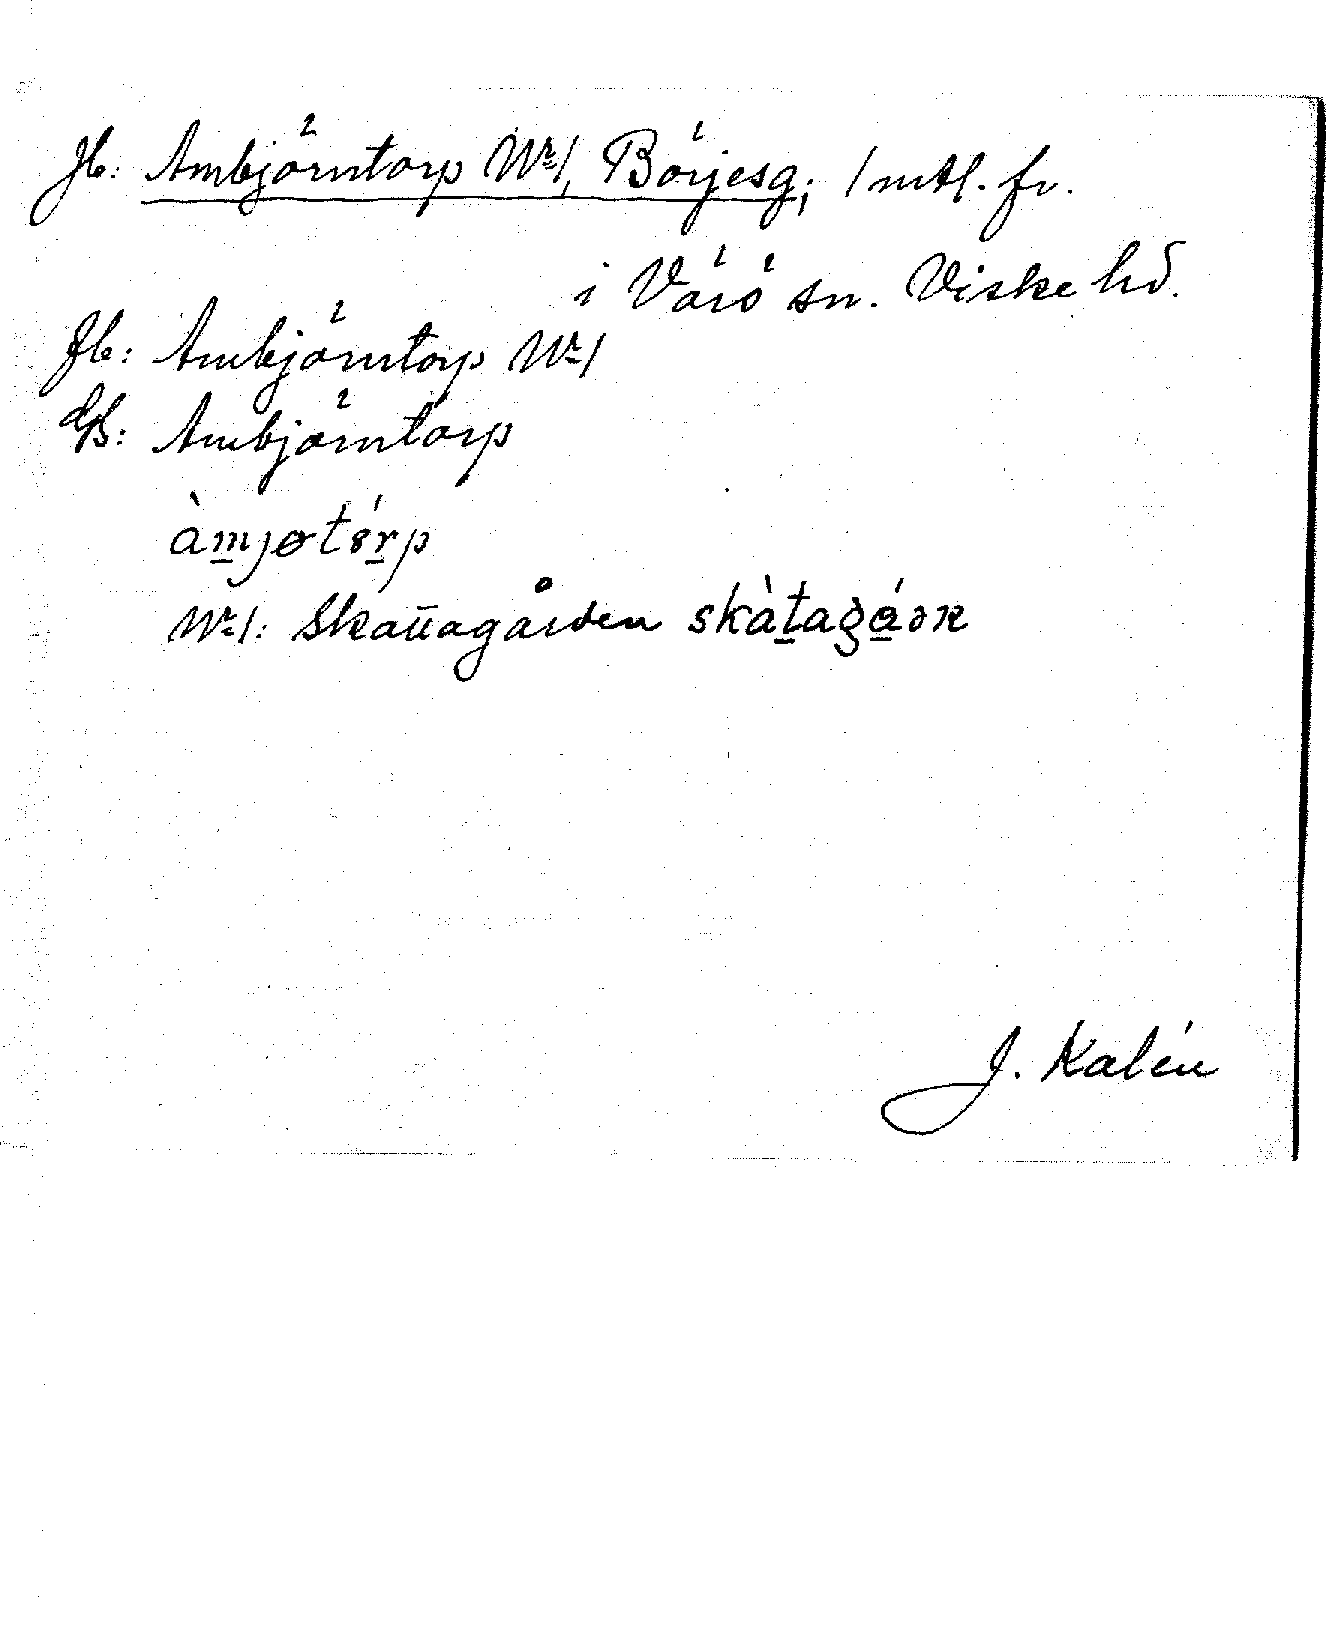 Jb: Ambjörntorp Nr 1, Börjesg; 1 mtl. fr.
i Värö sn. Viske hd.
Jb: Ambjörntorp Nr 1
GS: Ambjörntorp
àmjøtórp
Nr 1: Skattagården skàtagáɷn
J. Kalén